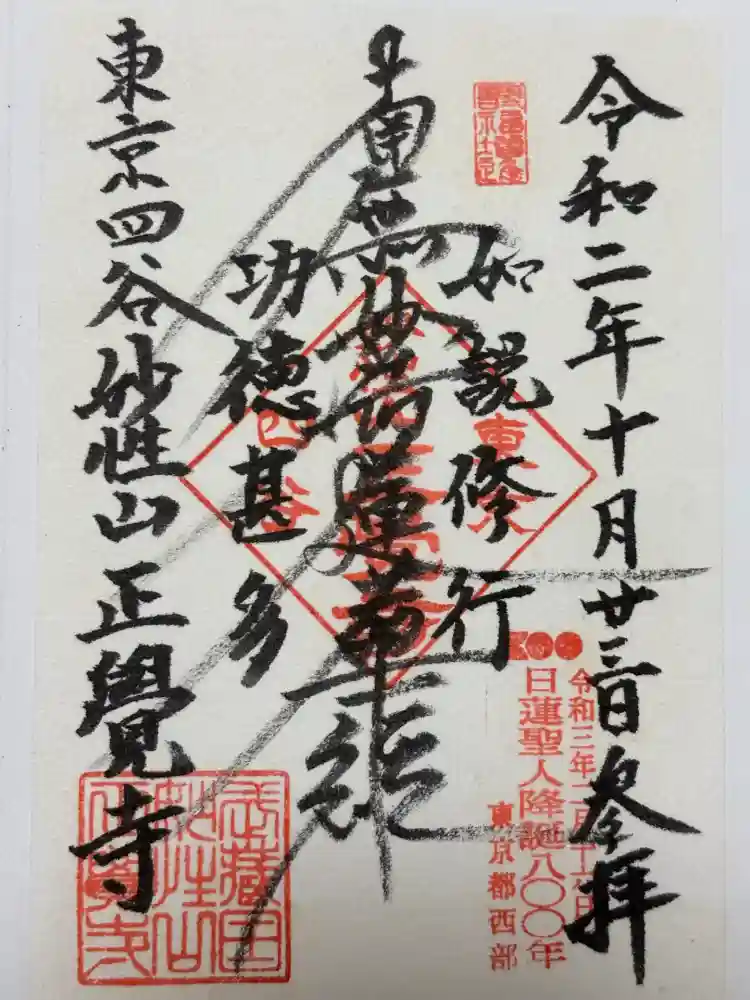 令和二年十月廿三日参拝
令和三年二月十六日
日蓮聖人降誕八〇〇年
東京都西部
如説修行
南無妙法蓮華経
功徳甚多
四谷
東京四谷妙性山正覺寺
武蔵国
妙性山
正覺寺